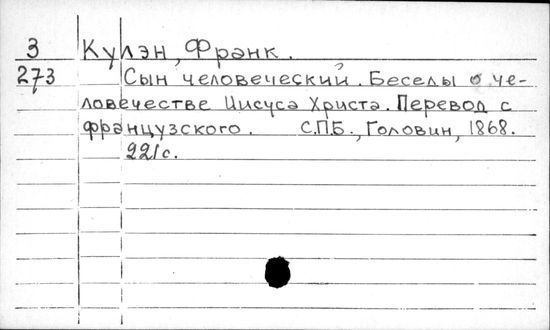 3 Кулэн, Франк.
273 Сын человеческий. Беседы о че-
ловечестве Иисуса Христа. Перевод с
французского. С.П.Б., Головин, 1868.
221с.